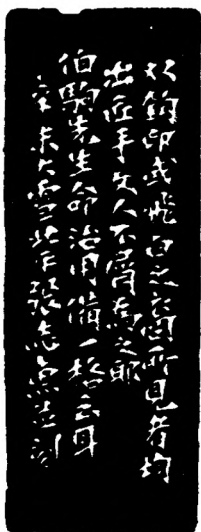 双鉤印或飛白之所見者均
出匠手文人不屑為之耶
伯駒先生命治用備一格云耳
辛未大雪北平張志魚並刻